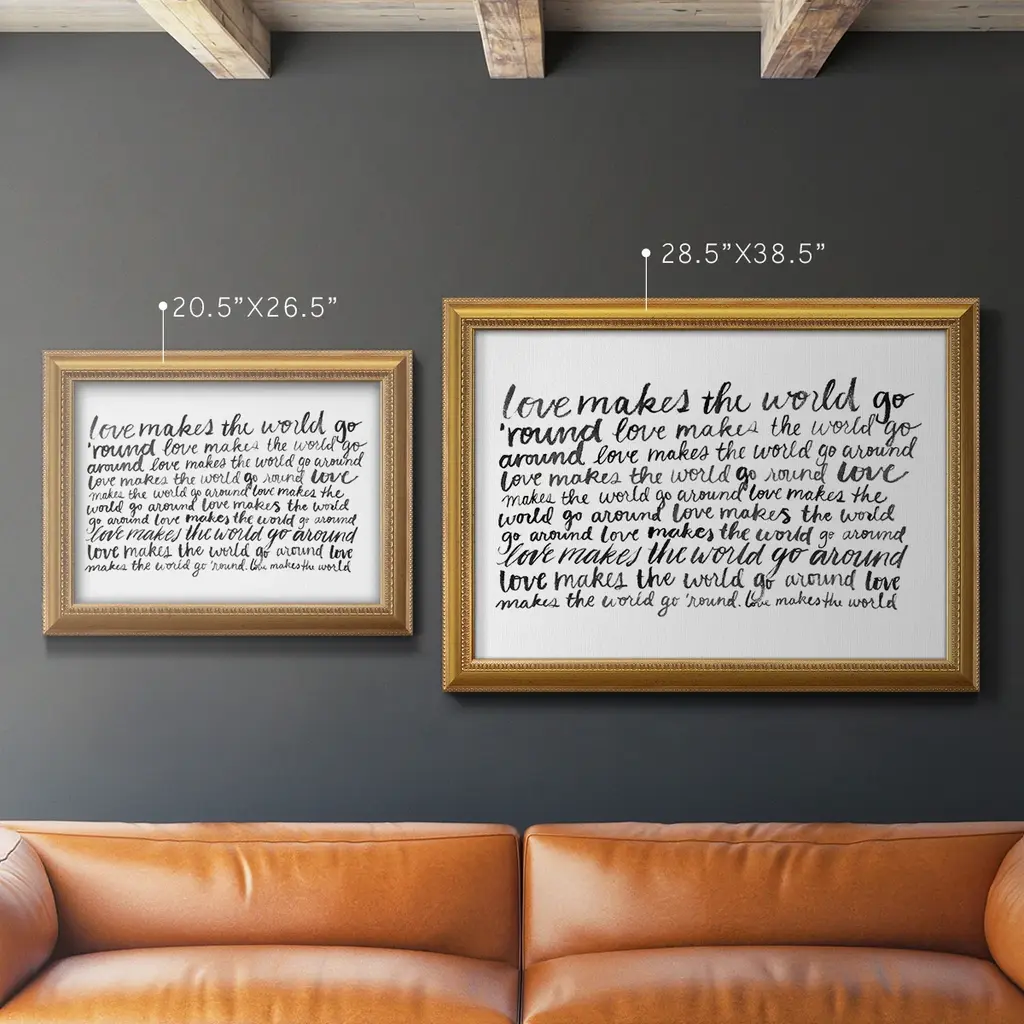 20.5”X26.5”
love makes the world go
'round love makes the world go
around love makes the world go around
love makes the world go round love
makes the world go around love makes the
world go around love makes the world
go around love makes the world go around
love makes the world go around
love makes the world go around love
makes the world go 'round. love makes the world
28.5”X38.5”
love makes the world go
'round love makes the world go
around love makes the world go around
love makes the world go round love
makes the world go around love makes the
world go around love makes the world
go around love makes the world go around
love makes the world go around
love makes the world go around love
makes the world go 'round. love makes the world